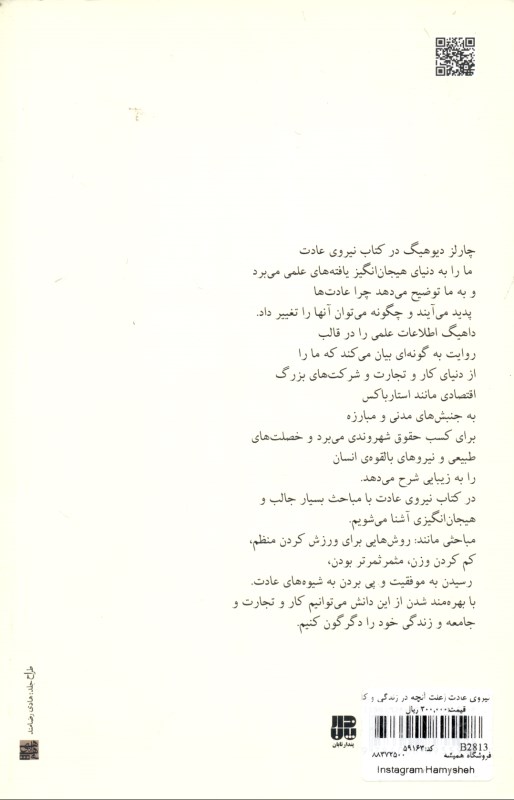 چارلز دیوهیگ در کتاب نیروی عادت
ما را به دنیای هیجان‌انگیز یافته‌های علمی می‌برد
و به ما توضیح می‌دهد چرا عادت‌ها
پدید می‌آیند و چگونه می‌توان آنها را تغییر داد.
داهیگ اطلاعات علمی را در قالب
روایت به گونه‌ای بیان می‌کند که ما را
از دنیای کار و تجارت و شرکت‌های بزرگ
اقتصادی مانند استارباکس
به جنبش‌های مدنی و مبارزه
برای کسب حقوق شهروندی می‌برد و خصلت‌های
طبیعی و نیروهای بالقوه‌ی انسان
را به زیبایی شرح می‌دهد.
در کتاب نیروی عادت با مباحث بسیار جالب و
هیجان‌انگیزی آشنا می‌شویم.
مباحثی مانند: روش‌هایی برای ورزش کردن منظم،
کم کردن وزن، مثمرثمرتر بودن،
رسیدن به موفقیت و پی بردن به شیوه‌های عادت.
با بهره‌مند شدن از این دانش می‌توانیم کار و تجارت و
جامعه و زندگی خود را دگرگون کنیم.
طراح جلد: هادی رضامند
پندار تابان
نیروی عادت (علت آنچه در زندگی و کا
قیمت: ۲۰۰,۰۰۰ ریال
B2813
کد: ۵۹۱۶۳
فروشگاه همیشه
۸۸۳۷۲۵۰۰
Instagram:Hamysheh